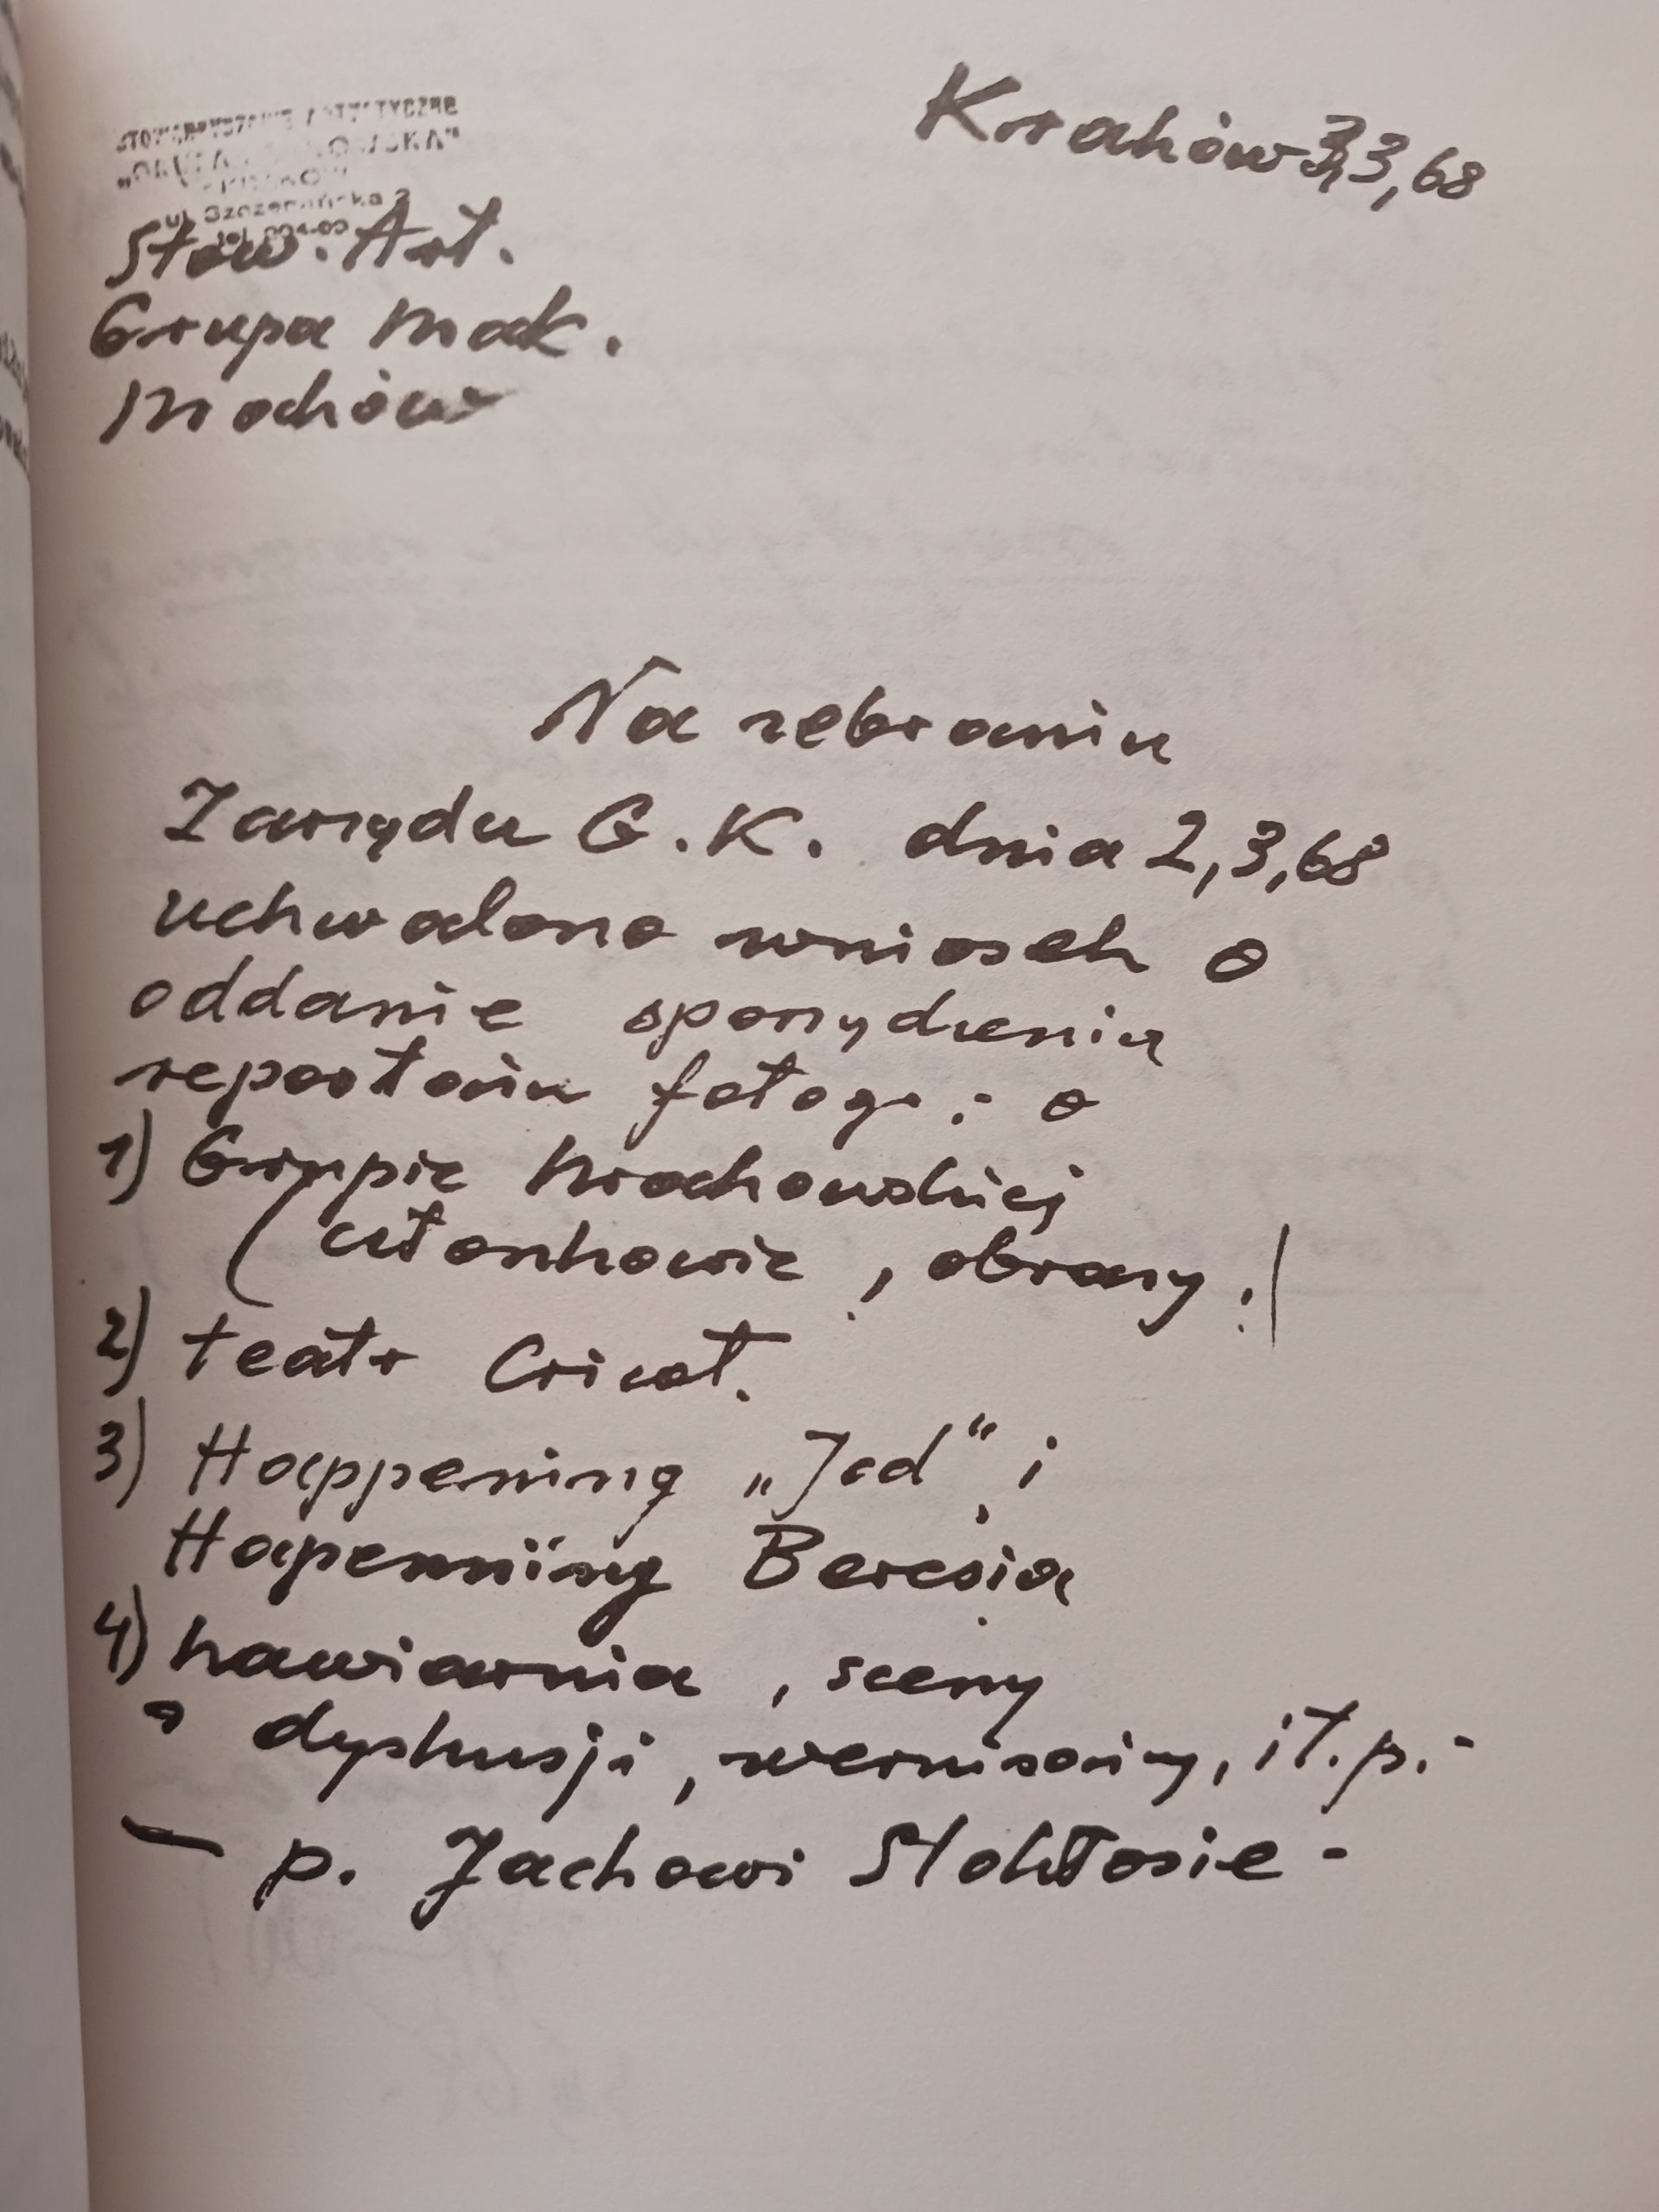 STOWARZYSZENIE ARTYSTYCZNE
ul. Szczepańska 2
Kraków 3,3,68
Stow. Art.
Grupa Krak.
Kraków
Na zebraniu
Zarządu G.K. dnia 2,3,68
uchwalono wniosek o
oddanie sporządzenia
reportażu fotogr: o
1) Grupie Krakowskiej
(członkowie, obrazy.)
2) teatr Cricot.
3) Happening „Jad" i
Hapenning Beresia
4) kawiarnia, sceny
dyskusji, wernisaży, it.p.-
— p. Jackowi Stokłosie -